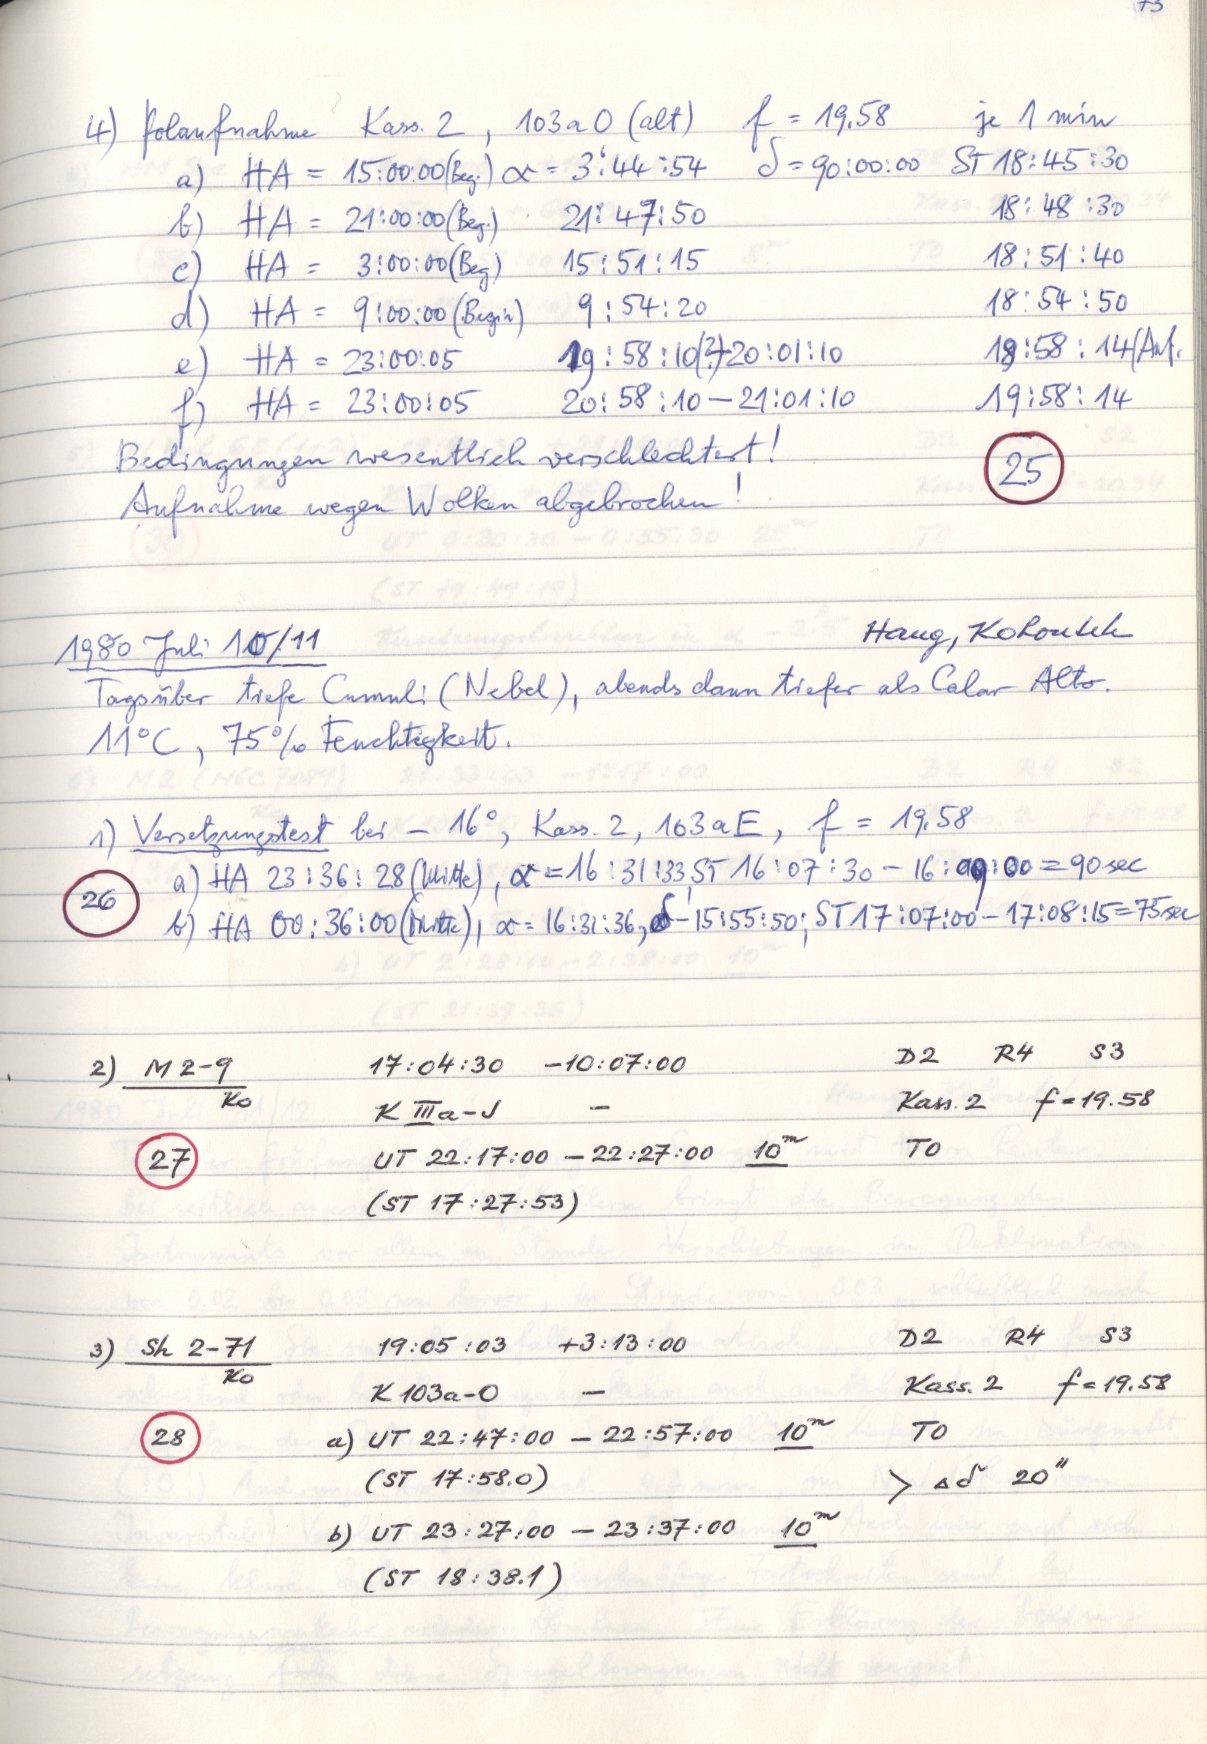 73
4) Polaufnahme Kass. 2, 103aO (alt) f = 19.58 je 1 min
a) HA = 15:00:00 (Beg.) α = 3:44:54 δ = 90:00:00 ST 18:45:30
b) HA = 21:00:00 (Beg.) 21:47:50 18:48:30
c) HA = 3:00:00 (Beg) 15:51:15 18:51:40
d) HA = 9:00:00 (Begin) 9:54:20 18:54:50
e) HA = 23:00:05 19:58:10(?)-20:01:10 18:58:14 (Anf.
f) HA = 23:00:05 20:58:10 – 21:01:10 19:58:14
Bedingungen wesentlich verschlechtert!
25
Aufnahme wegen Wolken abgebrochen!
1980 Juli 10/11 Haug, Kohoutek
Tagsüber tiefe Cumuli (Nebel), abends dann tiefer als Calar Alto.
11°C, 75% Feuchtigkeit.
1) Versetzungstest bei – 16°, Kass. 2, 103aE, f = 19.58
a) HA 23:36:28 (Mitte), α = 16:31:33, ST 16:07:30 – 16:09:00 = 90 sec
26
b) HA 00:36:00 (Mitte), α = 16:31:36, δ –15:55:50; ST 17:07:00 – 17:08:15 = 75 sec
2) M 2-9 17:04:30 –10:07:00 D2 R4 S3
Ko K IIIa-J – Kass. 2 f = 19.58
27 UT 22:17:00 – 22:27:00 10ᵐ TO
(ST 17:27:53)
3) Sh 2-71 19:05:03 +3:13:00 D2 R4 S3
Ko K 103a-O – Kass. 2 f = 19.58
28 a) UT 22:47:00 – 22:57:00 10ᵐ TO
(ST 17:58.0) > Δδ 20"
b) UT 23:27:00 – 23:37:00 10ᵐ
(ST 18:38.1)